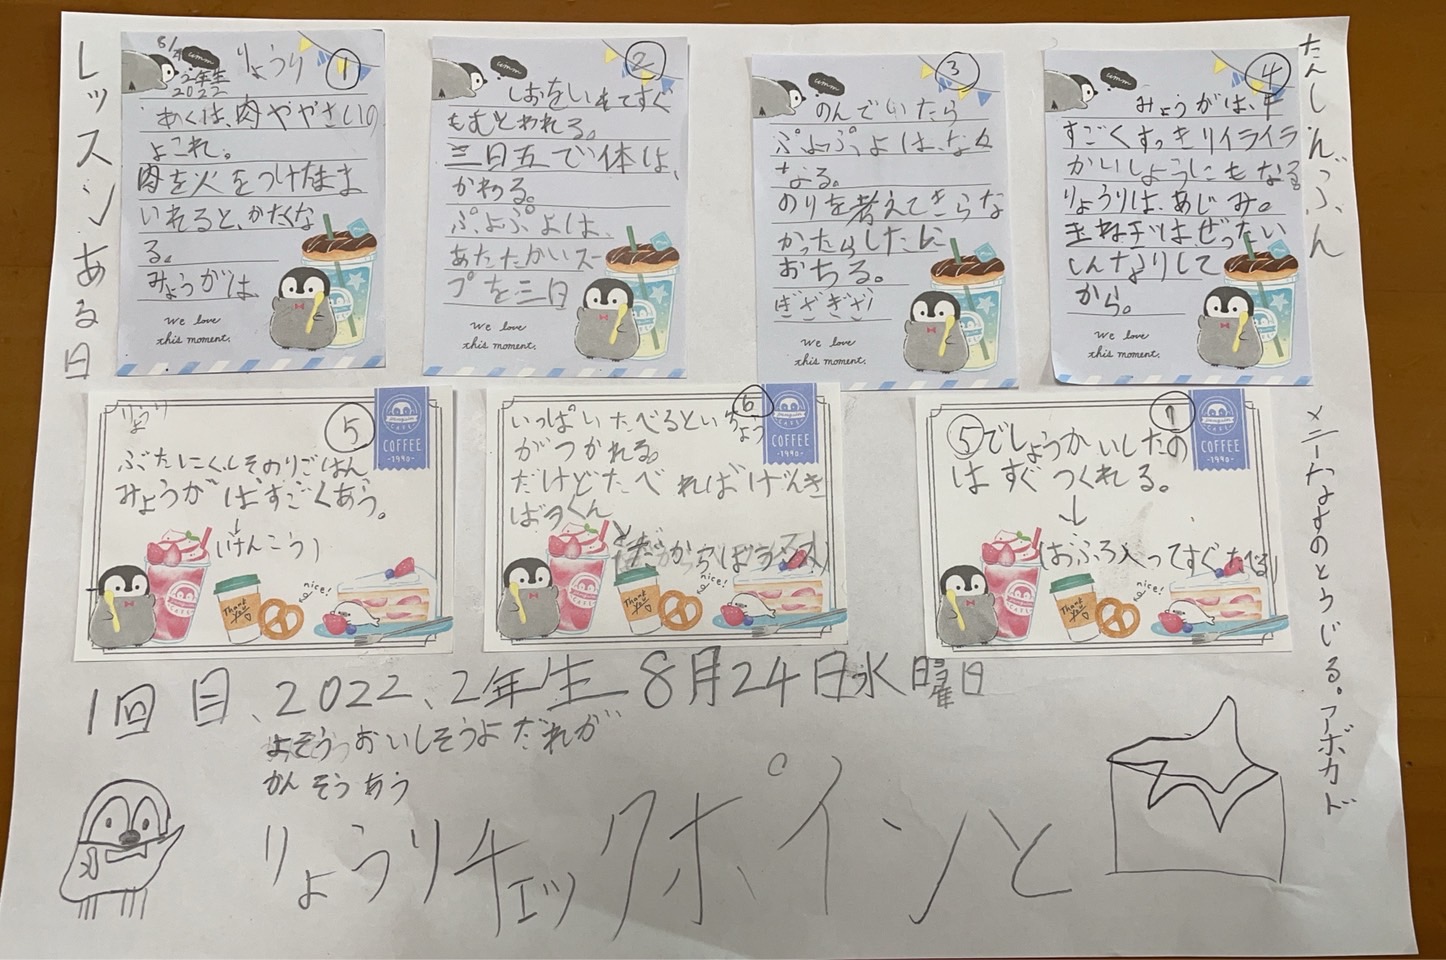 レッスンある日
たんしんぷん
メニーなすのとうじる。アボカド
8/
2年生
2022
りょうり
①
あくは、肉ややさいの
よごれ。
肉を火をつけたまま
いれると、かたくな
る。
みょうがは
We love
this moment.
②
しおをいれてすぐ
もむとわれる。
三日五で体は、
かわる。
ぷよぷよは、
あたたかいスー
プを三日
We love
this moment.
③
のんでいたら
ぷよぷよは、なく
なる。
のりを考えてきらな
かったらしたに
おちる。
ぎざぎざ
We love
this moment.
④
みょうがは、
すごくすっきりイライラ
かいしょうにもなる
りょうりは、あじみ。
玉ねぎはぜったい
しんなりして
から。
We love
this moment.
りょうり
⑤
ぶたにくしそのりごはん
みょうがはすごくあう。
↓
(けんこう)
penguin
CAFE
COFFEE
-1990-
Thank
you
nice!
⑥
いっぱいたべるといちょう
がつかれる。
だけどたべればげんき
ばっくん
penguin
CAFE
COFFEE
-1990-
Thank
you
nice!
⑦
⑤でしょうかいしたの
はすぐつくれる。
↓
(おふろ入ってすぐたべる)
penguin
CAFE
COFFEE
-1990-
Thank
you
nice!
1回目、2022、2年生8月24日水曜日
よそう おいしそうよだれが
かんそう あう
りょうりチェックポインと